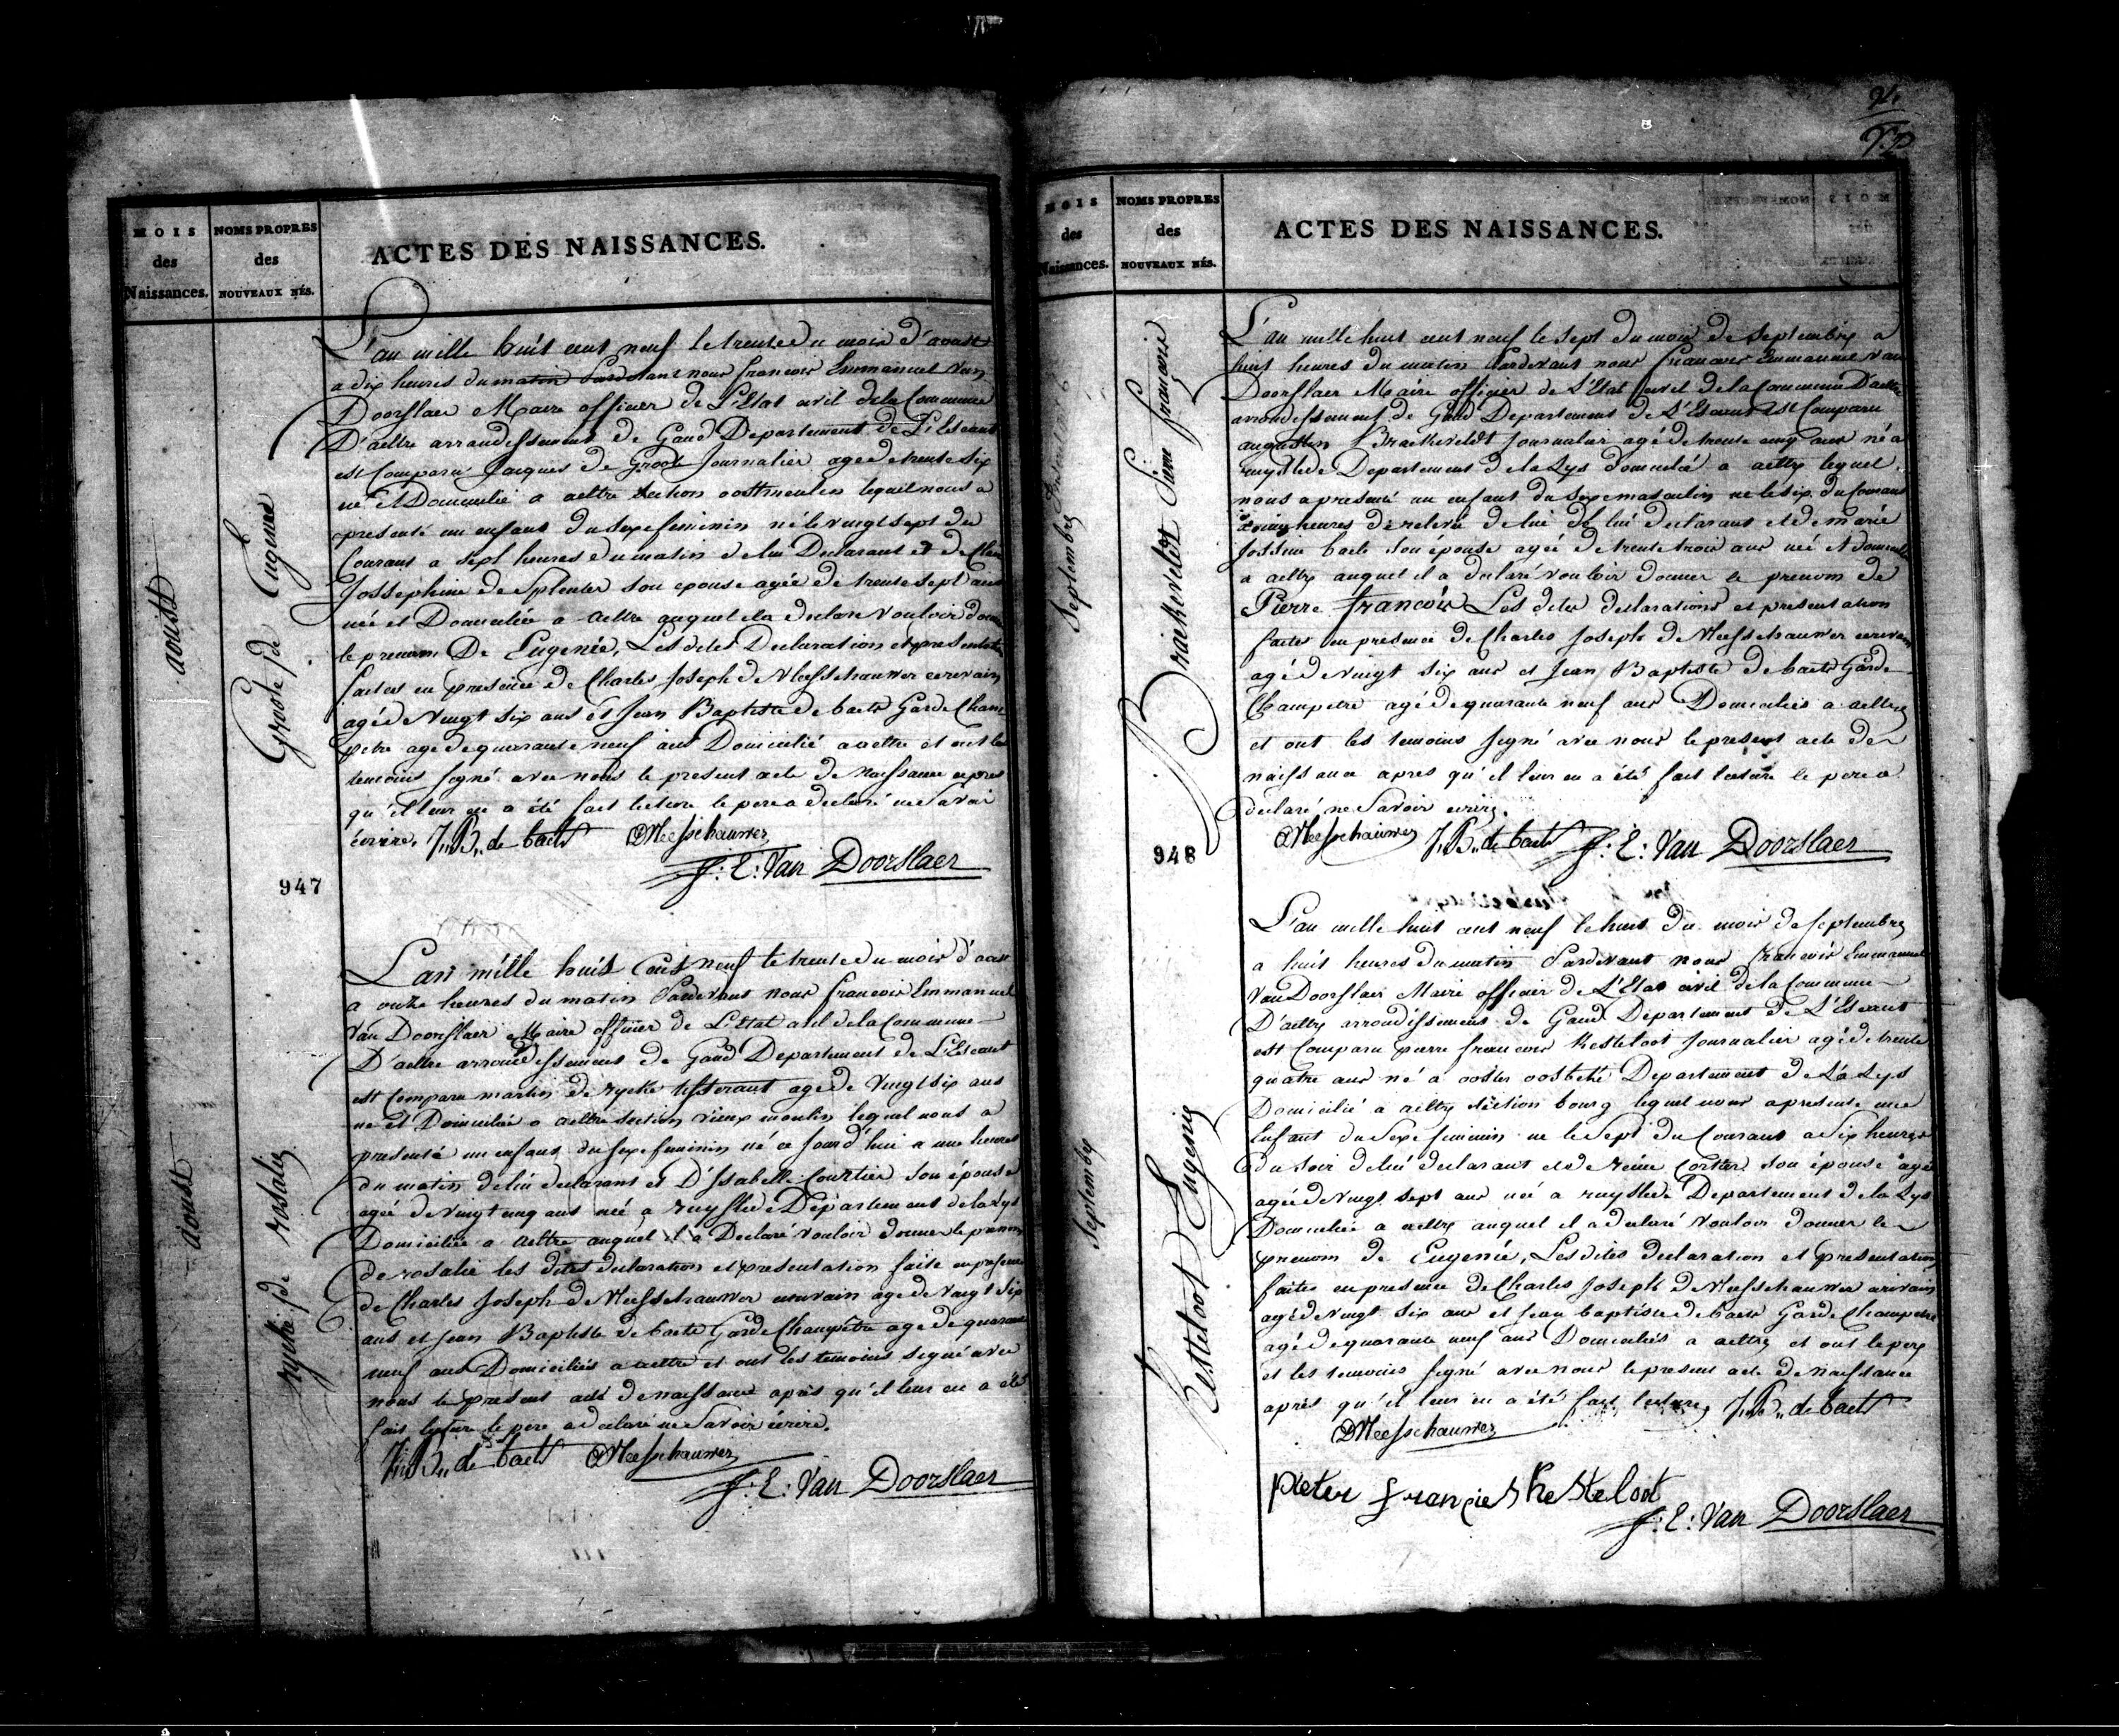 MOIS
des
Naissances.
NOMS PROPRES
des
NOUVEAUX NÉS.
ACTES DES NAISSANCES.
aoust
Groote de Eugenie
L'an mille huit cent neuf le trente du mois d'aoust
a dix heures du matin Pardevant nous francois Emmanuel Van
Doorslaer Maire officier de L'Etat civil de la Commune
D'aeltre arrondissement de Gand Departement de L'Escaut
est Comparu Jacques de Groote Journalier age de trente six
né Et Domicilie a aeltre section oostmeulen lequel nous a
presenté un enfant du sexe feminin né le vingt sept du
Courant a sept heures du matin de lui Declarant et de
Jossephine de Splenter son epouse agée de trente sept ans
née et Domiciliée a aeltre auquel il a declaré vouloir donner
le prenom De Eugenie, Les dites Declaration et presentation
faites en presence de Charles Joseph de Meesschauwer ecrivain
agé de Vingt six ans et Jean Baptiste de baets Garde Cham
petre age de quarante neuf ans Domicilié a aeltre et ont les
temoins signé avec nous le present acte de Naissance apres
qu'il leur en a été fait lecture le pere a declaré ne Savoir
écrire. J.B. de baets DMeesschauwer
F: E: Van Doorslaer
947
aoust
ryeke de rosalie
L'an mille huit Cent neuf le trente du mois d'aout
a onze heures du matin Pardevant nous francois Emmanuel
Van Doorslaer Maire officier de L'Etat civil de la Commune
D'aeltre arrondissement de Gand Departement de L'Escaut
est Comparu martin de rycke tisserant age de Vingt six ans
né et Domicilie a aeltre section vieux moulin lequel nous a
presenté un enfant du sexe feminin né ce jourd'hui a une heures
du matin de lui declarant et D'Isabelle Courtier son épouse
agée de Vingt cinq ans née a ruysslede Departement de la Lys
Domiciliée a aeltre auquel il a Declaré vouloir donner le prenom
de rosalie les dites declaration et presentation faite en presence
de Charles Joseph de Meesschauwer ecrivain age de Vingt six
ans et Jean Baptiste de baets Garde Champêtre age de quarante
neuf ans Domiciliés a aeltre et ont les temoins signé avec
nous le present acte de naissance après qu'il leur en a été
fait lecture le pere a declaré ne Savoir écrire.
J.B. de baets DMeesschauwer
F: E: Van Doorslaer
MOIS
des
Naissances.
NOMS PROPRES
des
NOUVEAUX NÉS.
ACTES DES NAISSANCES.
Septembre
Braekevelet Pierre françois
L'an mille huit cent neuf le sept du mois de septembre a
huit heures du matin Pardevant nous francois Emmanuel Van
Doorslaer Maire officier de L'Etat civil de la Commune D'aeltre
arrondissement de Gand Departement de L'Escaut est Comparu
augustin Braekeveldt Journalier agé de trente cinq ans né a
ruysslede Departement de la Lys domicilié a aeltre lequel
nous a presenté un enfant du sexe masculin né le six du Courant
a cinq heures de relevée de lui de lui declarant et de marie
Jossine baele son épouse agée de trente trois ans née et domiciliée
a aeltre auquel il a declaré vouloir donner le prenom de
Pierre francois Les dites declarations et presentation
faites en presence de Charles Joseph de Meesschauwer ecrivain
agé de vingt six ans et Jean Baptiste de baets Garde
Champetre agé de quarante neuf ans Domiciliés a aeltre
et ont les temoins signé avec nous le present acte de
naissance apres qu'il leur en a été fait lecture le pere a
declaré ne Savoir ecrire.
DMeesschauwer J.B. de baets F: E: Van Doorslaer
948
Septembre
Kesteloot Eugenie
L'an mille huit cent neuf le huit du mois de septembre
a huit heures du matin Pardevant nous francois Emmanuel
Van Doorslaer Maire officier de L'Etat civil de la Commune
D'aeltre arrondissement de Gand Departement de L'Escaut
est Comparu pierre francois Kesteloot Journalier agé de trente
quatre ans né a Departement de La Lys
Domicilié a aeltre section bourg lequel nous a presenté une
Enfant du Sexe feminin né le Sept du Courant a Six heures
du soir de lui declarant et de reine son épouse agée
agée de vingt sept ans née a ruysslede Departement de la Lys
Domiciliée a aeltre auquel il a declaré vouloir donner le
prenom de Eugenie, Les dites declaration et presentation
faites en presence de Charles Joseph de Meesschauwer ecrivain
agé de vingt six ans et Jean baptiste de baets Garde Champetre
agé de quarante neuf ans Domiciliés a aeltre et ont le pere
et les temoins signé avec nous le present acte de naissance
après qu'il leur en a été fait lecture, J.B. de baets
DMeesschauwer
pieter francies kesteloot
F: E: Van Doorslaer